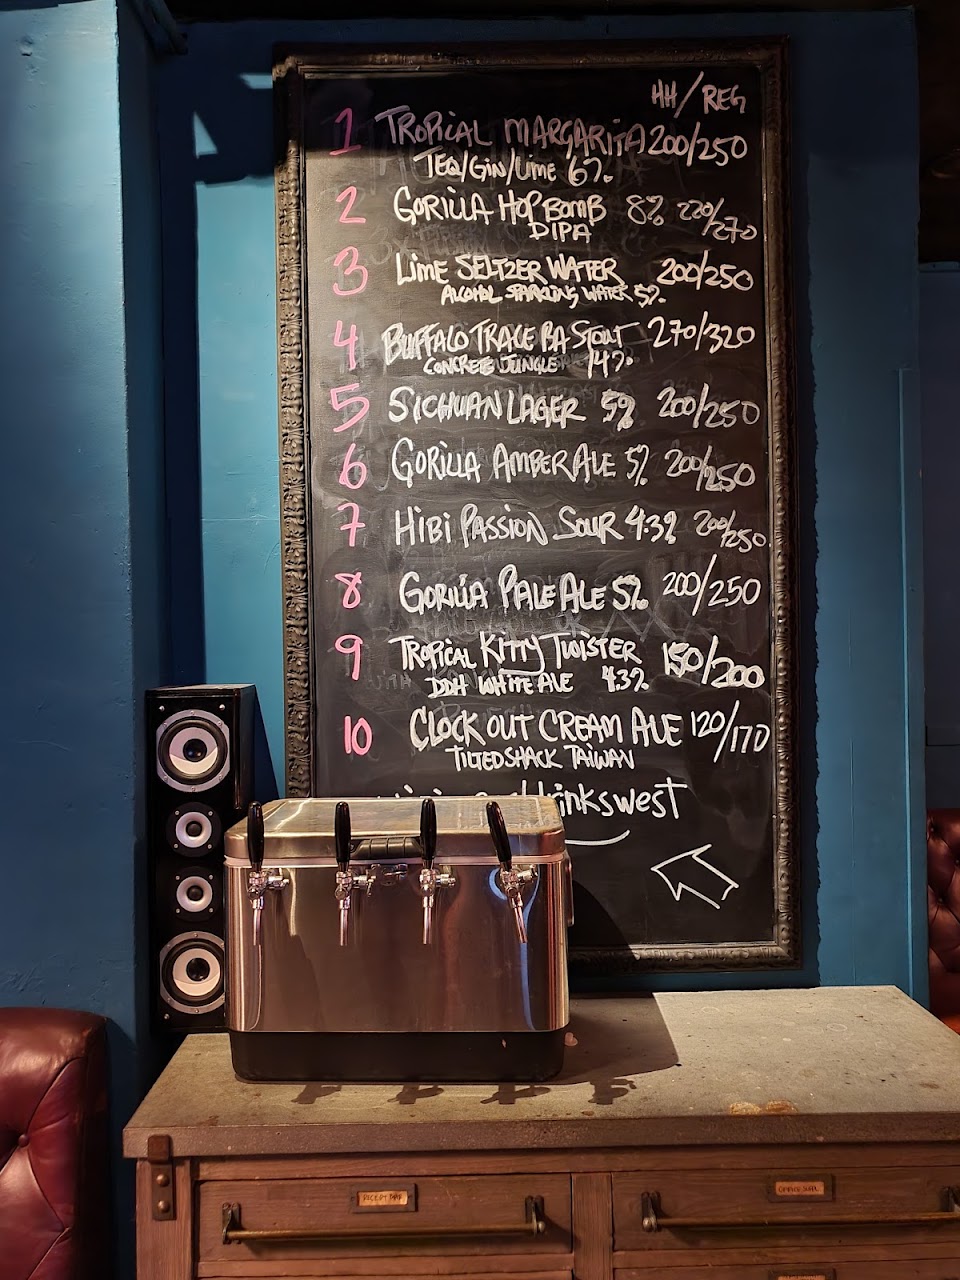 HH/REG
1 TROPICAL MARGARITA 200/250
TEQ/GIN/LIME 6%
2 GORILLA HOP BOMB 8% 220/270
DIPA
3 LIME SELTZER WATER 200/250
ALCOHOL SPARKLING WATER 5%
4 BUFFALO TRACE BA STOUT 270/320
CONCRETE JUNGLE 14%
5 SICHUAN LAGER 5% 200/250
6 GORILLA AMBER ALE 5% 200/250
7 HIBI PASSION SOUR 4.3% 200/250
8 GORILLA PALE ALE 5% 200/250
9 TROPICAL KITTY TWISTER 150/200
DDH WHITE ALE 4.3%
10 CLOCK OUT CREAM ALE 120/170
TILTED SHACK TAIWAN
inkswest